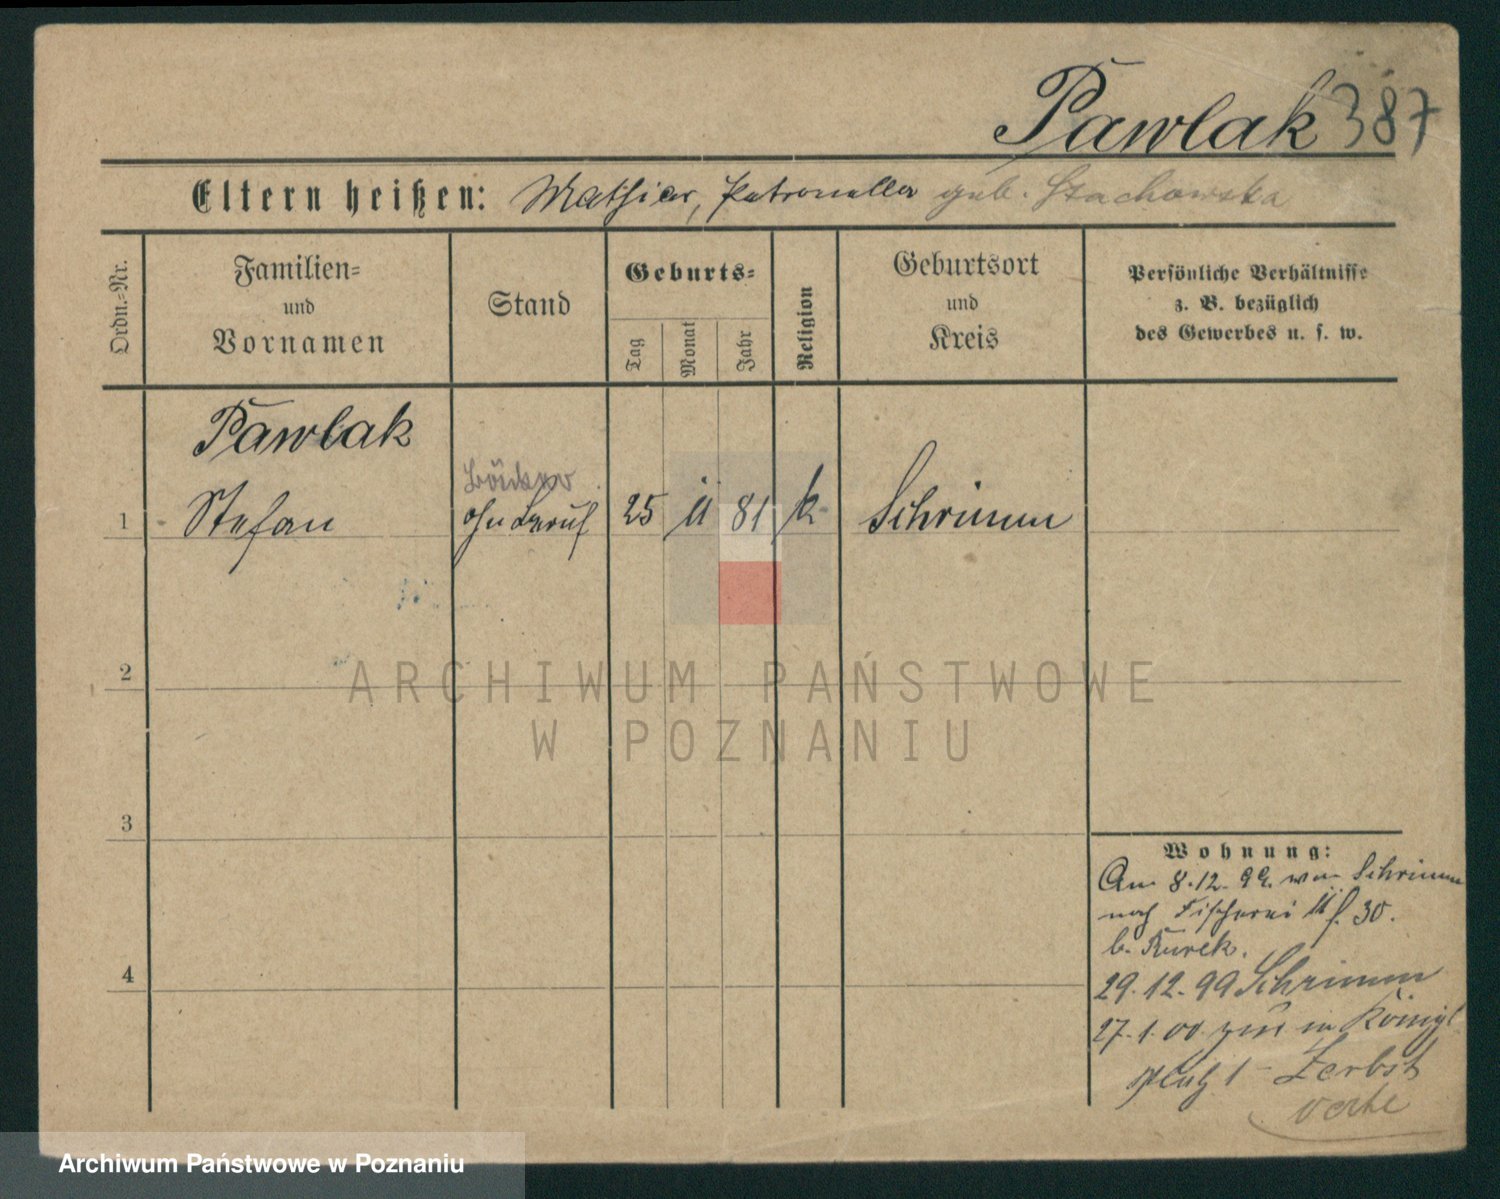 Pawlak 387
Eltern heißen: Mathias, Petronella geb. Stachowska
Ordn.-Nr.
Familien-
und
Vornamen
Stand
Geburts-
Tag
Monat
Jahr
Religion
Geburtsort
und
Kreis
Persönliche Verhältnisse
z. B. bezüglich
des Gewerbes u. s. w.
Pawlak
Bäcker
1 Stefan ohn Beruf 25 11 81 k. Schrimm
2
ARCHIWUM PAŃSTWOWE
W POZNANIU
3
Wohnung:
Am 8.12.99. von Schrimm
nach Fischerei 30.
b. Kurek.
4
29.12.99 Schrimm
27.1.00 in Königs
platz 1 - Zerbst
verte
Archiwum Państwowe w Poznaniu